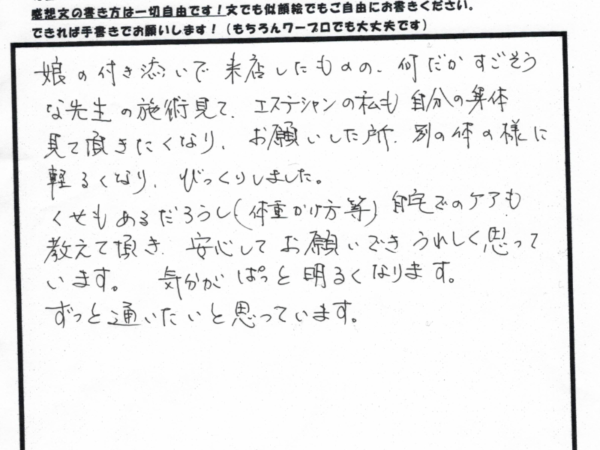 感想文の書き方は一切自由です！文でも似顔絵でもご自由にお書きください。
できれば手書きでお願いします！（もちろんワープロでも大丈夫です）
娘の付き添いで来店したものの、何だかすごそう
な先生の施術見て、エステシャンの私も自分の身体
見て頂きたくなり、お願いした所、別の体の様に
軽るくなり、びっくりしました。
くせもあるだろうし(体重かけ方等)自宅でのケアも
教えて頂き、安心してお願いできうれしく思って
います。気分がぱっと明るくなります。
ずっと通いたいと思っています。